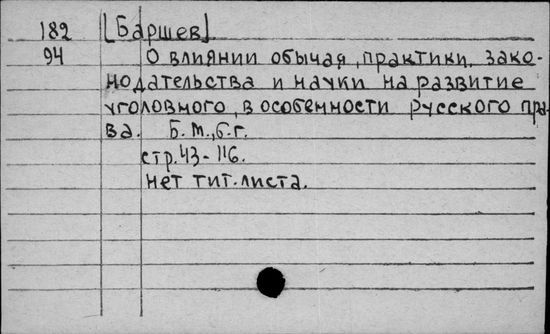 182 [Баршев]
94 О влиянии обычая, практики, зако-
нодательства и науки на развитие
уголовного, в особенности русского пра-
ва. Б.м., б.г.
стр. 43-116.
нет тит. листа.